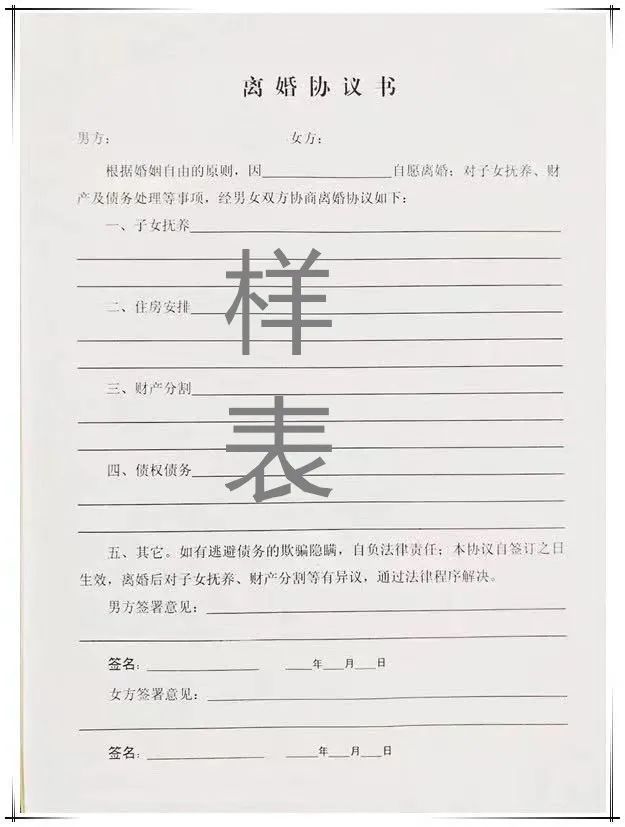 离婚协议书
男方： 女方：
根据婚姻自由的原则，因____________自愿离婚；对子女抚养、财
产及债务处理等事项，经男女双方协商离婚协议如下：
一、子女抚养
二、住房安排
三、财产分割
四、债权债务
样
表
五、其它。如有逃避债务的欺骗隐瞒，自负法律责任；本协议自签订之日
生效，离婚后对子女抚养、财产分割等有异议，通过法律程序解决。
男方签署意见：
签名：____________ ____年____月____日
女方签署意见：
签名：____________ ____年____月____日